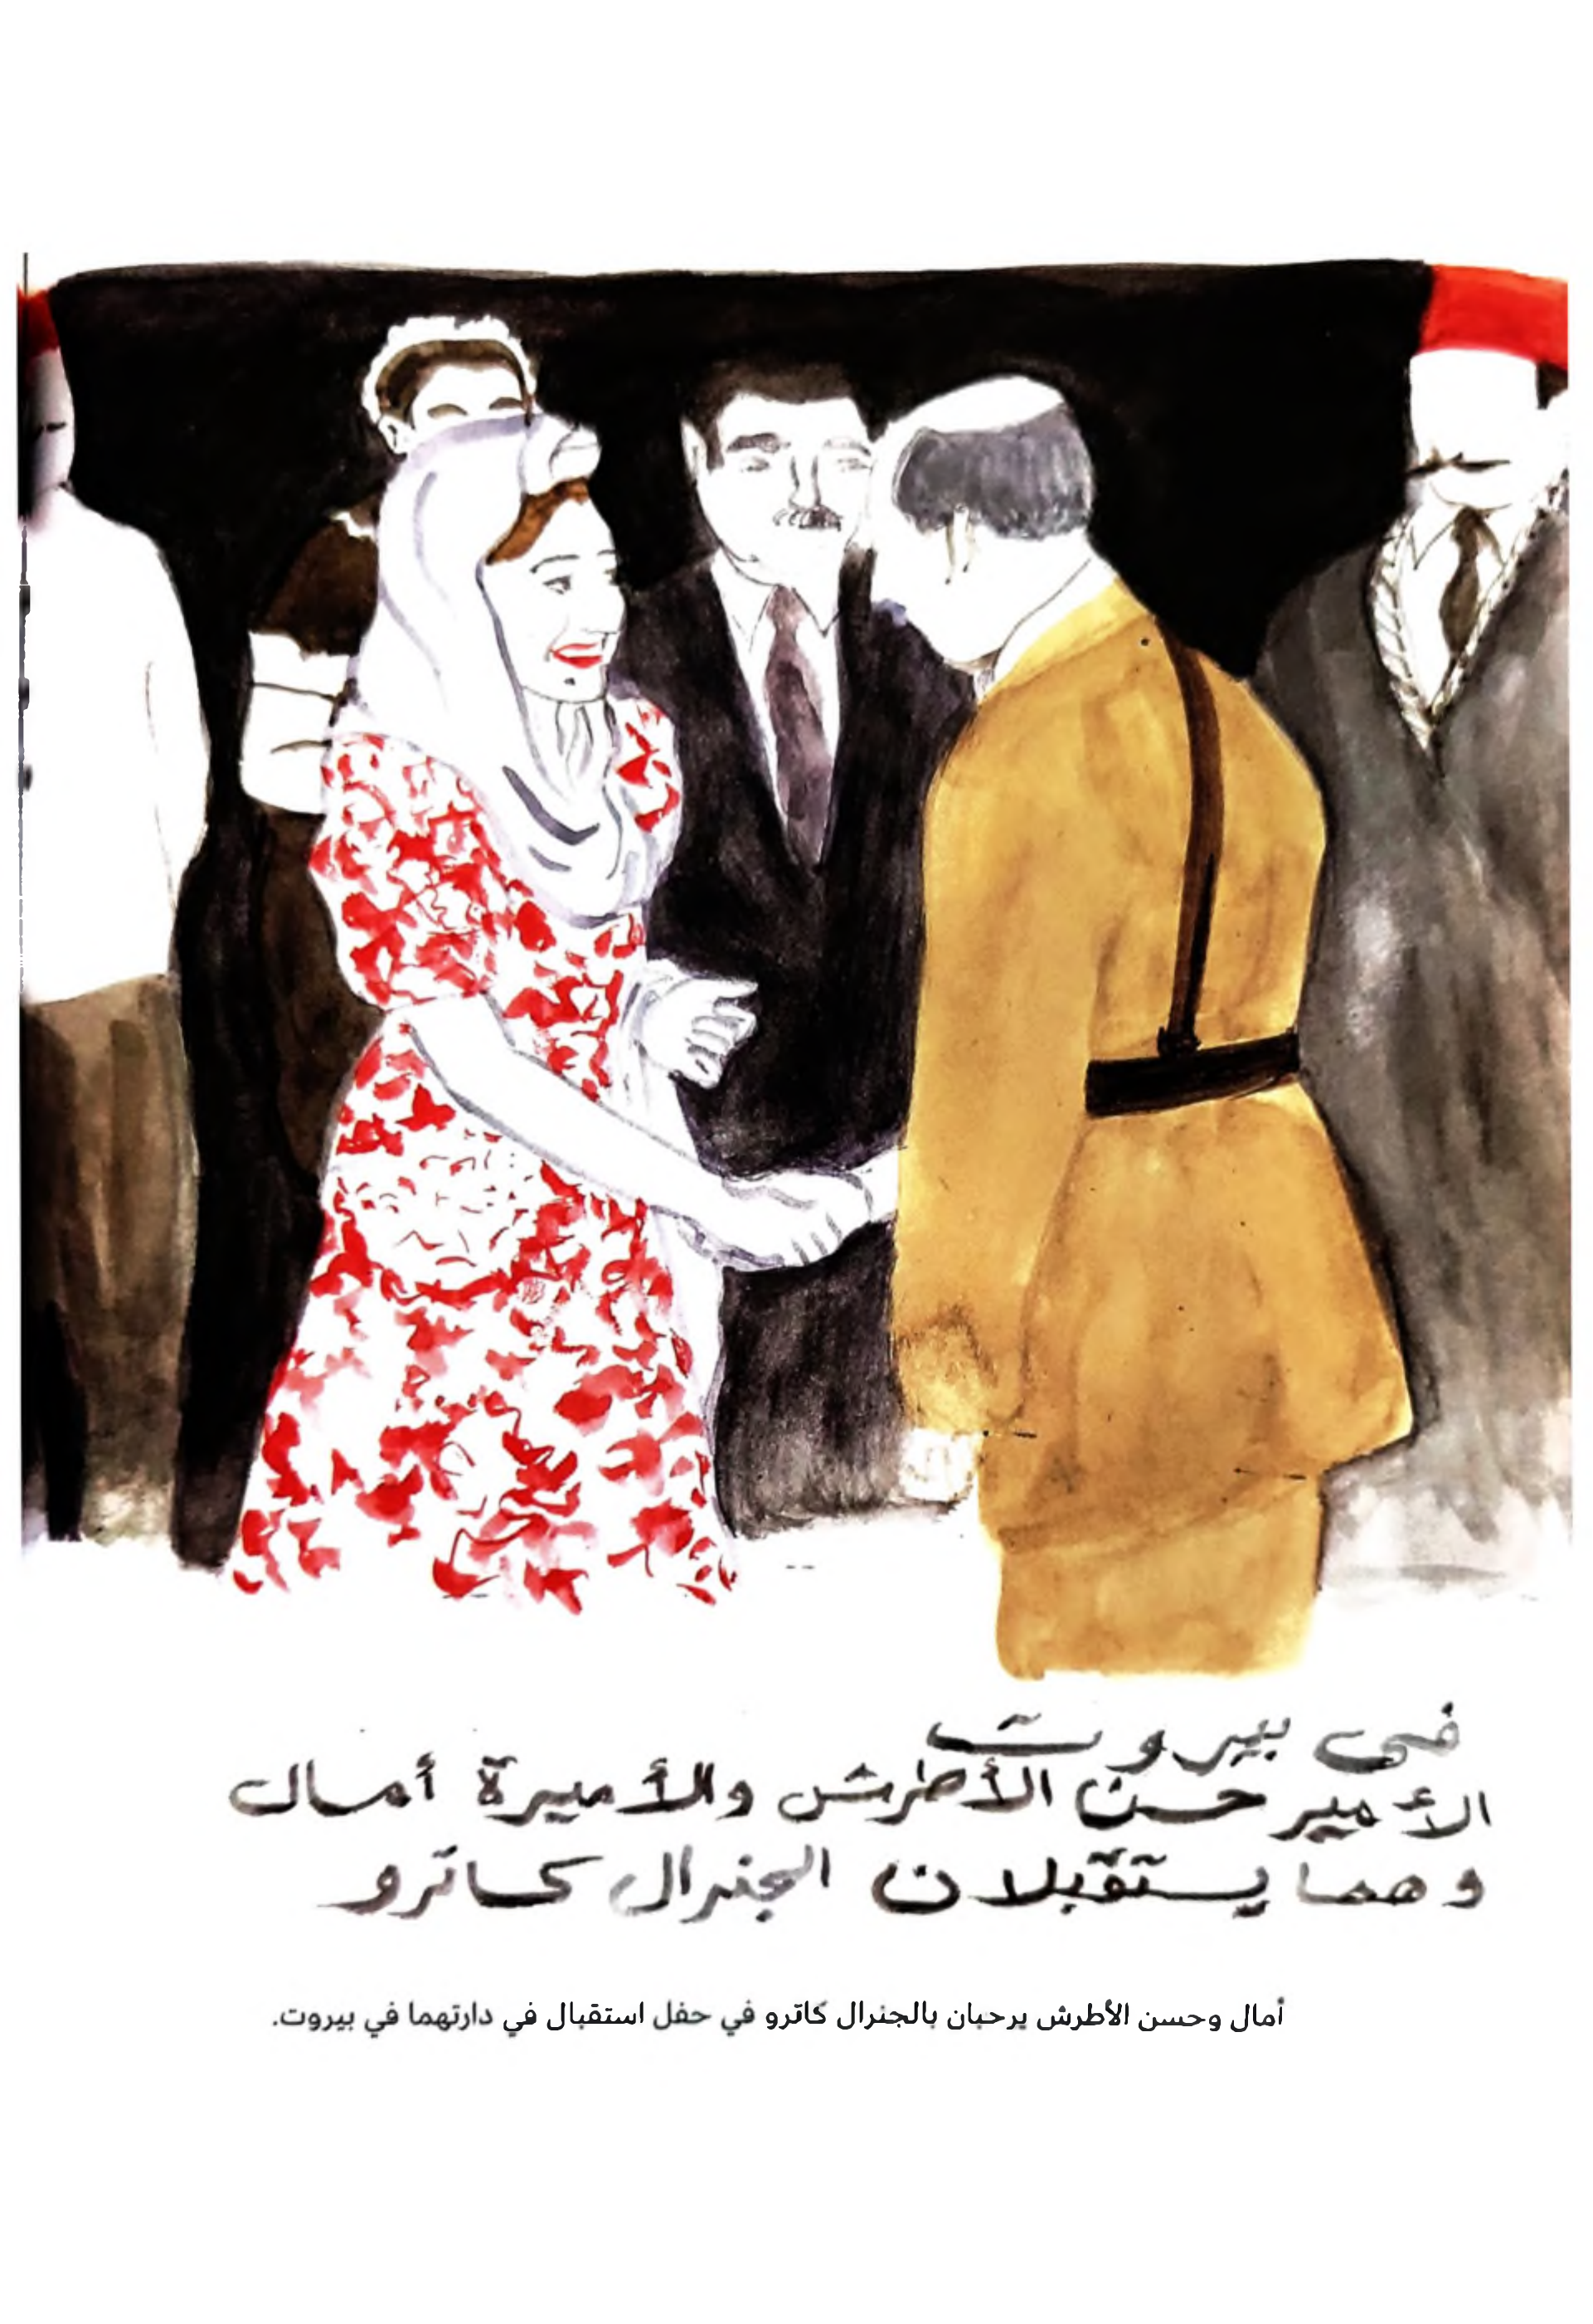 في بيروت
الأمير حسن الأطرش والأميرة أمال
وهما يستقبلان الجنرال كاترو
أمال وحسن الأطرش يرحبان بالجنرال كاترو في حفل استقبال في دارتهما في بيروت.